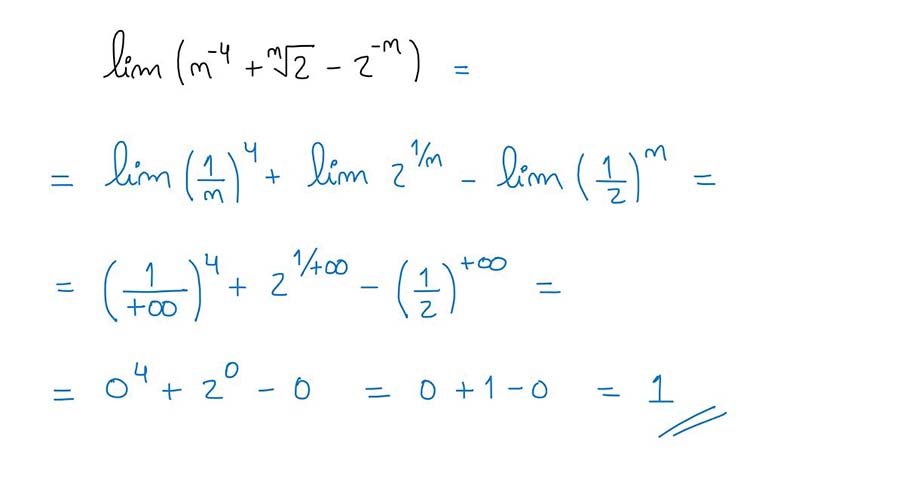 lim (n⁻⁴ + ⁿ√2 − 2⁻ⁿ) =
= lim (1/n)⁴ + lim 2^(1/n) − lim (1/2)ⁿ =
= (1/+∞)⁴ + 2^(1/+∞) − (1/2)^(+∞) =
= 0⁴ + 2⁰ − 0 = 0 + 1 − 0 = 1